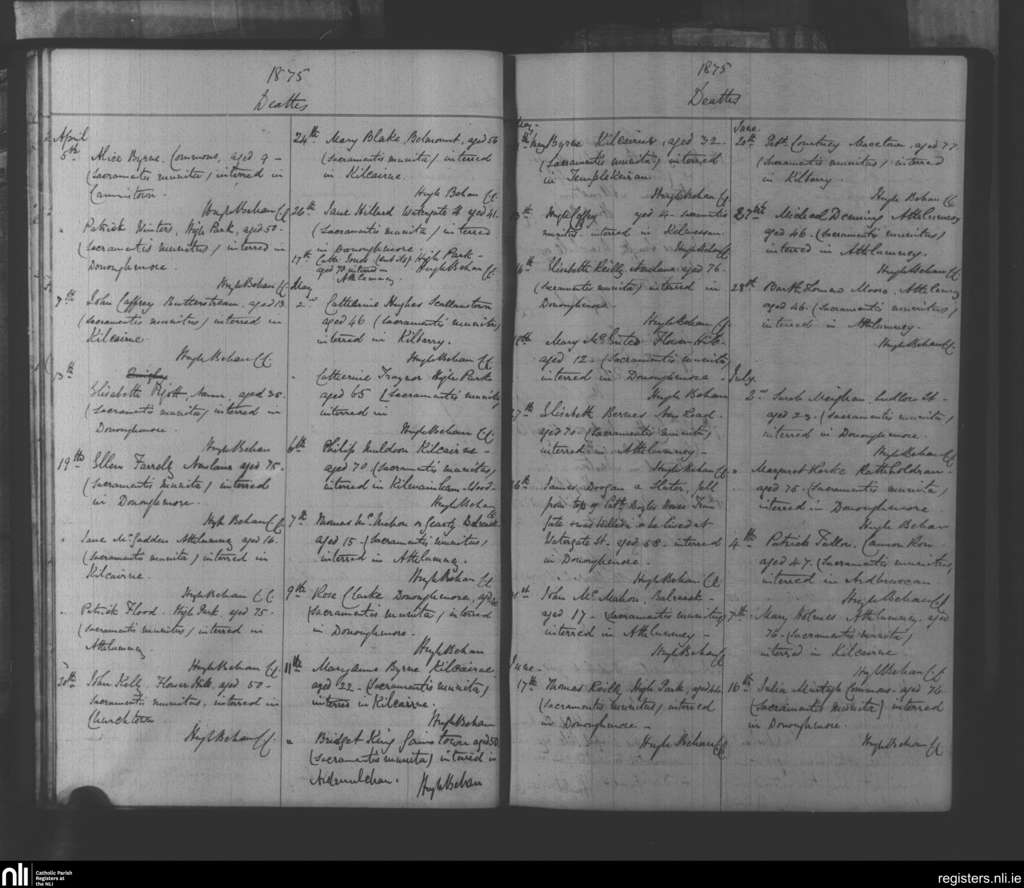 1875
Deaths
April
5th Alice Byrne, Commons, aged 9 -
(sacramentis munita) interred in
Cannistown.
Hugh Behan CC
" Patrick Winters, High Park, aged 50 -
(sacramentis munitus) interred in
Donoughmore.
Hugh Behan CC
7th John Caffrey Butterstream, aged 13
(sacramentis munitus) interred in
Kilcairne
Hugh Behan CC
13th
Elisabeth Pigott, Navan, aged 30.
(sacramentis munita) interred in
Donoughmore.
Hugh Behan
19th Ellen Farrell, aged 75.
(sacramentis munita) interred
in Donoughmore
Hugh Behan CC
" Jane McFadden Athlumney aged 16.
(sacramentis munita) interred in
Kilcairne.
Hugh Behan CC
" Patrick Flood. High Park aged 75 -
(sacramentis munitus) interred in
Athlumney
Hugh Behan CC
20th John Kelly, Flower Hill, aged 50 -
sacramentis munitus, interred in
Churchtown
Hugh Behan CC
24th Mary Blake, Belmount, aged 56
(sacramentis munita) interred
in Kilcairne.
Hugh Behan CC
26th Jane Hilliard Watergate St aged 41.
(sacramentis munita) interred
in Donoughmore
17th High Park -
aged 70 interred -
Athlumney
Hugh Behan CC
May
2nd Catherine Hughes
aged 46. (sacramentis munita)
interred in Kilberry.
Hugh Behan CC
" Catherine Traynor High Park
aged 65 (sacramentis munita)
interred in
Hugh Behan CC
6th Philip Muldoon Kilcairne -
aged 70. (sacramentis munitus)
interred in Kilmainham-Wood.
Hugh Behan CC
7th Thomas McMahon or Balreask
aged 15 - (sacramentis munitus)
interred in Athlumney.
Hugh Behan CC
9th Rose Clarke Donoughmore, aged
(sacramentis munita) interred
in Donoughmore.
Hugh Behan
11th Maryanne Byrne, Kilcairne,
aged 22 - (sacramentis munita)
interred in Kilcairne.
Hugh Behan
" Bridget King aged 50
(sacramentis munita) interred in
Ardmulchan.
Hugh Behan
1875
Deaths
May -
Byrne Kilcairne, aged 32 -
(sacramentis munita) interred
in Templekieran
Hugh Behan CC
Hugh Caffrey aged 4 - sacramentis
munitus - interred in
Hugh Behan CC
Elisabeth Reilly, aged 76 -
(sacramentis munita) interred in
Donoughmore
Hugh Behan CC
Mary McEntee Flower Hill -
aged 12 - (sacramentis munita)
interred in Donoughmore -
Hugh Behan
27th Elisabeth New Road -
aged 70 - (sacramentis munita)
interred in Athlumney -
Hugh Behan CC
James Doogan a Slater, fell
from top of House Trim
Gate & was killed - he lived at
Watergate St. aged 58 - interred
in Donoughmore.
Hugh Behan CC
John McMahon. Balreask -
aged 17 - (sacramentis munitus)
interred in Athlumney -
Hugh Behan CC
June -
17th Thomas Reilly, High Park, aged
(sacramentis munitus) interred
in Donoughmore -
Hugh Behan CC
June
20th Patt Courtney aged 77.
(sacramentis munitus) interred
in Kilberry.
Hugh Behan CC
Michael Downing Athlumney
aged 46 - (sacramentis munitus)
interred in Athlumney.
Hugh Behan CC
28th Moore, Athlumney
aged 46. (sacramentis munitus)
interred in Athlumney.
Hugh Behan CC
July
2nd Sarah Meighan Ludlow St -
aged 23 - (sacramentis munita)
interred in Donoughmore.
Hugh Behan CC
" Margaret
aged 75 - (sacramentis munita)
interred in Donoughmore
Hugh Behan
4th Patrick Cannon Row
aged 47. (sacramentis munitus)
interred in Ardbraccan
Hugh Behan CC
7th Mary Holmes Athlumney, aged
76 - (sacramentis munita)
interred in Kilcairne
Hugh Behan CC
16th Julia Commons - aged 76
(sacramentis munita) interred
in Donoughmore.
Hugh Behan CC
nli
Catholic Parish
Registers at
the NLI
registers.nli.ie